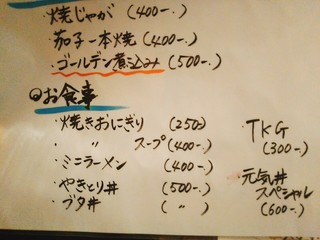 ・焼じゃが (400-.)
茄子一本焼 (400-.)
・ゴールデン煮込み (500-.)
お食事
・焼きおにぎり (250)
・ 〃 スープ (400-.)
・ミニラーメン (400-.)
・やきとり丼 (500-.)
・ブタ丼 ( 〃 )
・TKG
(300-.)
・元気丼
スペシャル
(600-.)